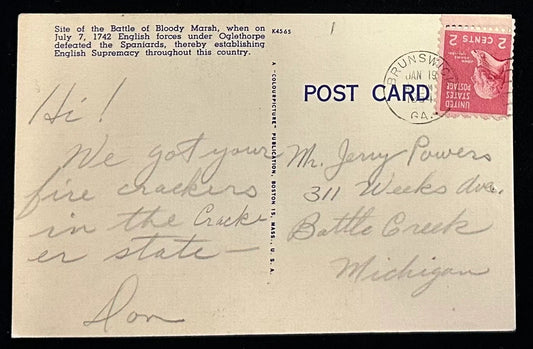 Site of the Battle of Bloody Marsh, when on
July 7, 1742 English forces under Oglethorpe
defeated the Spaniards, thereby establishing
English Supremacy throughout this country.
K4565
1
2 CENTS 2
UNITED
STATES
POSTAGE
BRUNSWICK
JAN 19
GA.
POST CARD
A "COLOURPICTURE" PUBLICATION, BOSTON 15, MASS., U.S.A.
Hi!
We got your
fire crackers
in the Crack
er state —
Don
Mr. Jerry Powers
311 Weeks Ave.
Battle Creek
Michigan